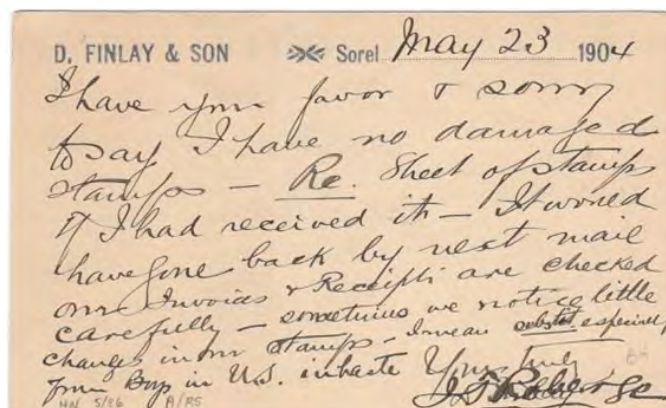 D. FINLAY & SON Sorel May 23 1904
I have your favor & sorry
to say I have no damaged
stamps – Re. Sheet of stamps
if I had received it – It would
have gone back by next mail
our Invoices & Receipts are checked
carefully – sometimes we notice little
changes in our stamps – I mean especially
from Boys in U.S. in haste Yours truly
HN 5/86 A/RS